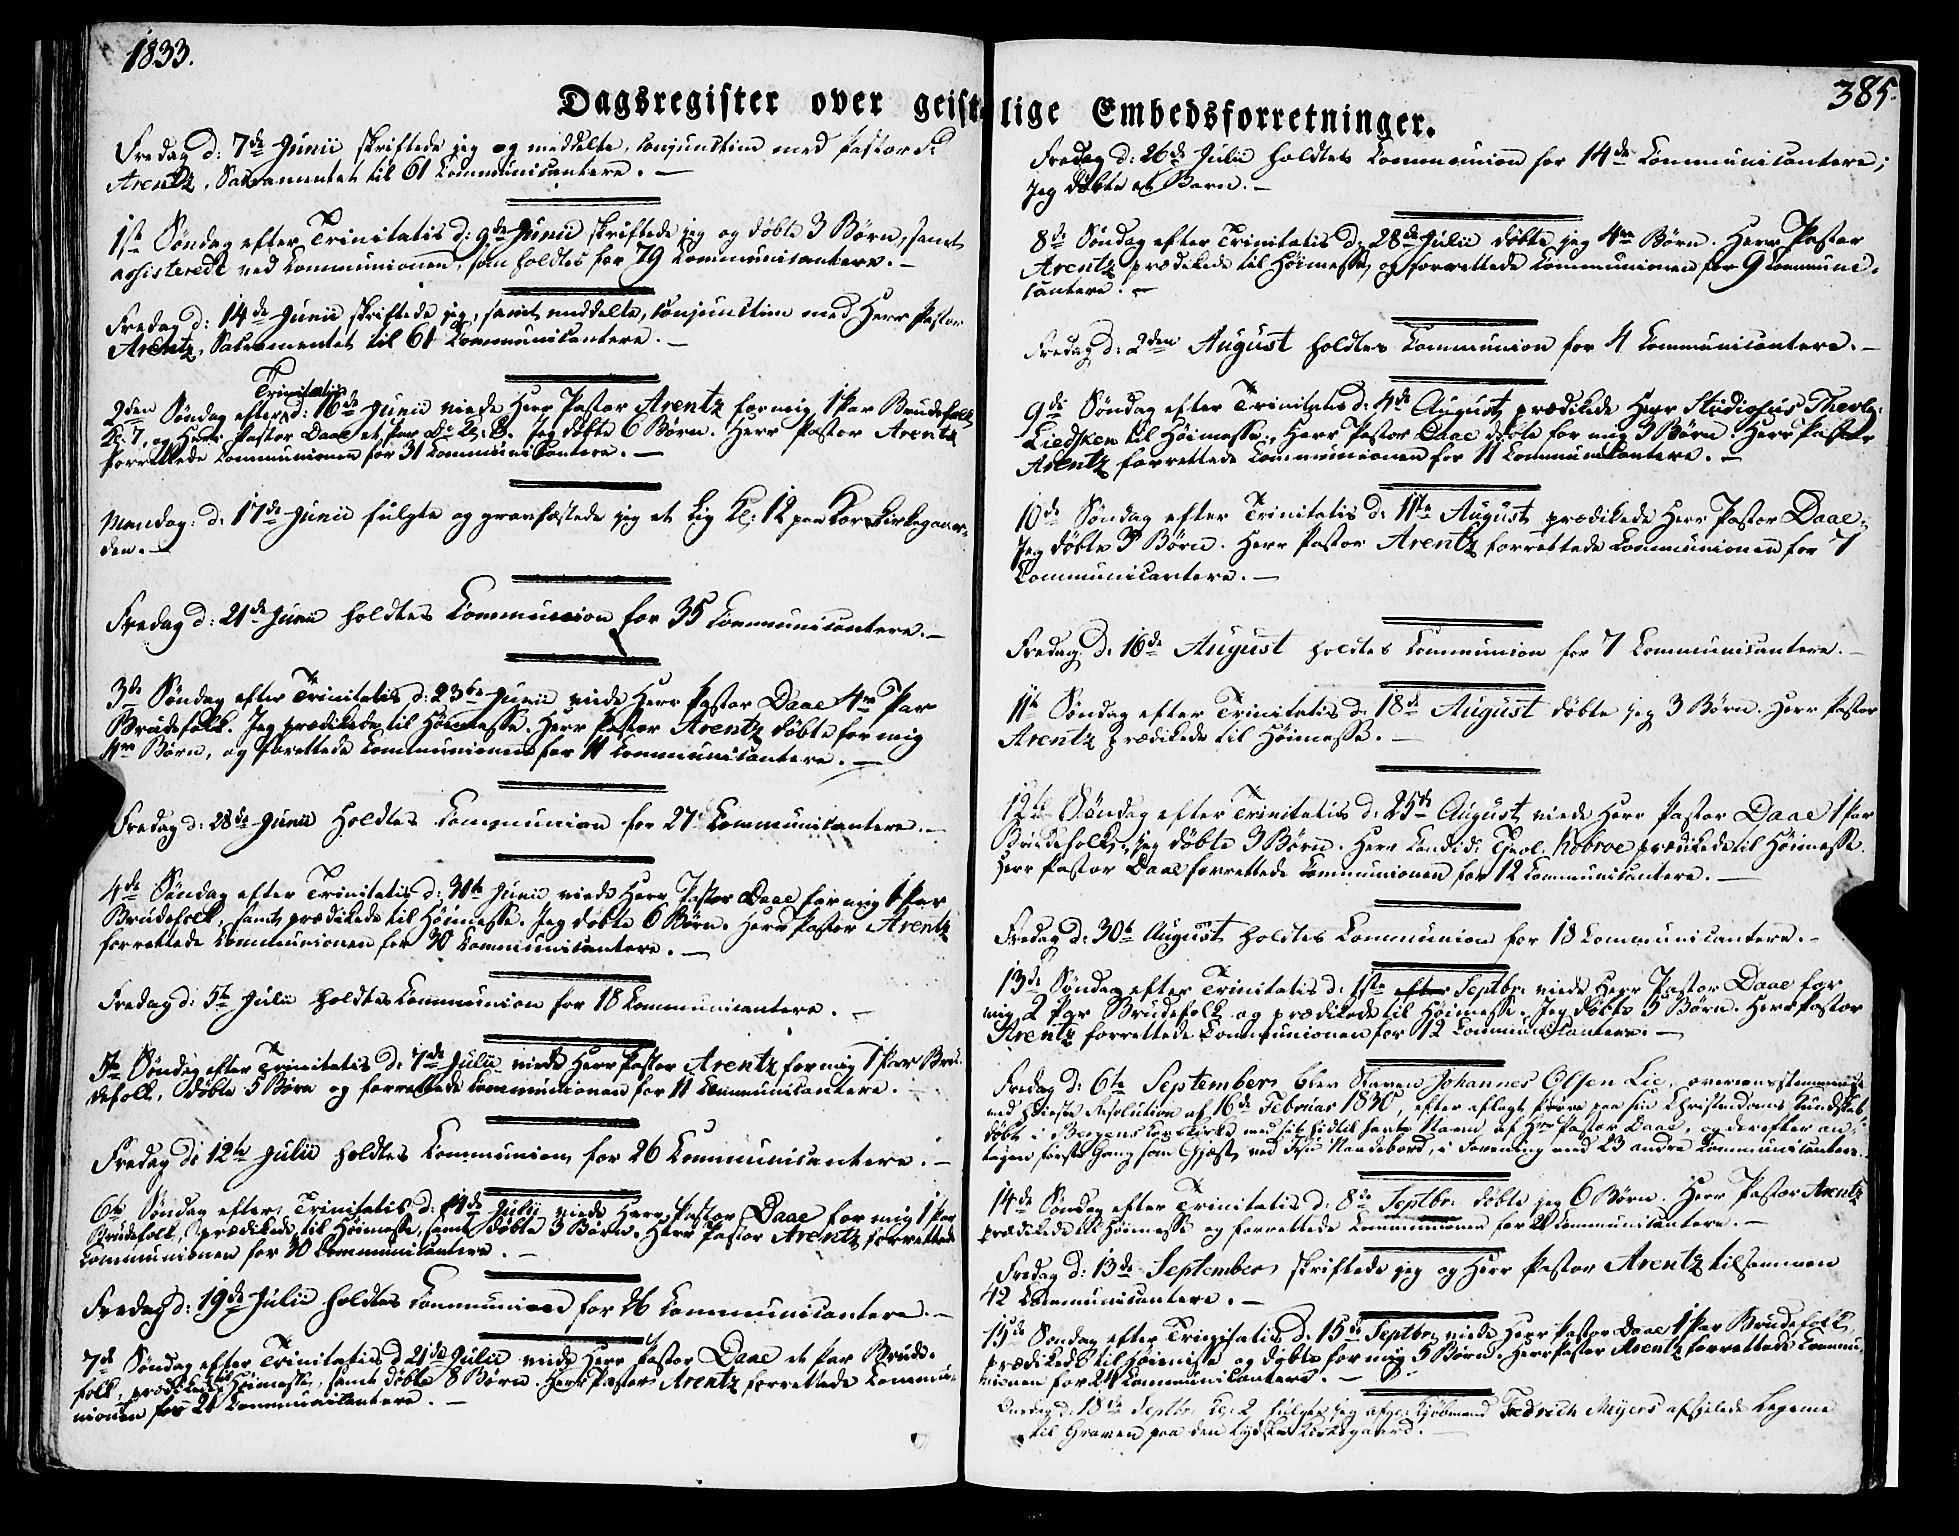 1833.
385.
Dagsregister over geistlige Embedsforretninger.
Fredag d: 7de Junii skriftede jeg og meddelte, conjunctim med Pastor
Arentz, Sacramentet til 61 Communicantere. —
1ste Søndag efter Trinitatis d: 9de Junii skriftede jeg og døbte 3 Børn, samt
assisterede ved Communionen, som holdtes for 79 Communicantere. —
Fredag d: 14de Junii skriftede jeg, samt meddelte, conjunctim med Herr Pastor
Arentz, Sacramentet til 61 Communicantere. —
2den Søndag efter Trinitatis d: 16de Junii viede Herr Pastor Arentz for mig 1 Par Brudefolk
Kl. 7, og Herr Pastor Daae et Par Jeg døbte 6 Børn. Herr Pastor Arentz
forrettede Communionen for 31 Communicantere. —
Mandag d: 17de Junii fulgte og gravfæstede jeg et Lig Kl: 12 paa Korskirkegaar-
den. —
Fredag d: 21de Junii holdtes Communion for 35 Communicantere. —
3de Søndag efter Trinitatis d: 23de Junii viede Herr Pastor Daae 4re Par
Brudefolk. Jeg prædikede til Høimesse. Herr Pastor Arentz døbte for mig
4re Børn, og forrettede Communionen for 11 Communicantere. —
Fredag d: 28de Junii holdtes Communion for 27 Communicantere. —
4de Søndag efter Trinitatis d: 30te Junii viede Herr Pastor Daae for mig 1 Par
Brudefolk, samt prædikede til Høimesse. Jeg døbte 6 Børn. Herr Pastor Arentz
forrettede Communionen for 30 Communicantere. —
Fredag d: 5te Julii holdtes Communion for 18 Communicantere. —
5te Søndag efter Trinitatis d: 7de Julii viede Herr Pastor Arentz for mig 1 Par Bru-
defolk, døbte 5 Børn og forrettede Communionen for 11 Communicantere.
Fredag d: 12te Julii holdtes Communion for 26 Communicantere. —
6te Søndag efter Trinitatis d: 14de Julij viede Herr Pastor Daae for mig 1 Par
Brudefolk, prædikede til Høimesse, samt døbte 3 Børn. Herr Pastor Arentz forrettede
Communionen for 30 Communicantere. —
Fredag d: 19de Julii holdtes Communion for 26 Communicantere. —
7de Søndag efter Trinitatis d: 21de Julii viede Herr Pastor Daae et Par Brude-
folk, prædikede til Høimesse, samt døbte 8 Børn. Herr Pastor Arentz forrettede Commu-
nionen for 21 Communicantere. —
Fredag d: 26de Julii holdtes Communion for 14de Communicantere;
Jeg døbte et Barn. —
8de Søndag efter Trinitatis d: 28de Julii døbte jeg 4re Børn. Herr Pastor
Arentz prædikede til Høimesse, og forrettede Communionen for 9 Communi-
cantere. —
Fredag d: 2den August holdtes Communion for 4 Communicantere. —
9de Søndag efter Trinitatis d: 4de August prædikede Herr Studiosus Theolg:
til Høimesse. Herr Pastor Daae døbte for mig 3 Børn. Herr Pastor
Arentz forrettede Communionen for 11 Communicantere. —
10de Søndag efter Trinitatis d: 11te August prædikede Herr Pastor Daae;
Jeg døbte 3 Børn. Herr Pastor Arentz forrettede Communionen for 7
Communicantere. —
Fredag d: 16de August holdtes Communion for 7 Communicantere. —
11te Søndag efter Trinitatis d: 18de August døbte jeg 3 Børn. Herr Pastor
Arentz prædikede til Høimesse. —
12te Søndag efter Trinitatis d: 25de August viede Herr Pastor Daae 1 Par
Brudefolk, jeg døbte 3 Børn. Herr Candid: Theol. Kobroe prædikede til Høimesse.
Herr Pastor Daae forrettede Communionen for 12 Communicantere. —
Fredag d: 30te August holdtes Communion for 18 Communicantere. —
13de Søndag efter Trinitatis d: 1ste efter Septbr. viede Herr Pastor Daae for
mig 2 Par Brudefolk og prædikede til Høimesse. Jeg døbte 5 Børn. Herr Pastor
Arentz forrettede Communionen for 12 Communicantere. —
Fredag d: 6te September, blev Slaven Johannes Olsen Lie, overensstemmende
med høieste Resolution af 16de Februar 1830, efter aflagt Prøve paa sin Christendoms Kundskab
døbt i Bergens Kors Kirke med sit hidtil havte Navn af Hrr Pastor Daae, og derefter an-
tagen første Gang som Gjæst ved Jesu Naadebord, i Forening med 23 andre Communicantere.
14de Søndag efter Trinitatis d: 8de Septbr. døbte jeg 6 Børn. Herr Pastor Arentz
prædikede til Høimesse og forrettede Communionen for 21 Communicantere. —
Fredag d: 13de September, skriftede jeg og Herr Pastor Arentz tilsammen
42 Communicantere. —
15de Søndag efter Trinitatis d: 15de Septbr. viede Herr Pastor Daae 1 Par Brudefolk,
prædikede til Høimesse og døbte for mig 5 Børn. Herr Pastor Arentz forrettede Commu-
nionen for 24 Communicantere. —
Onsdag d: 18de Septbr. Kl: 2 fulgte jeg afg: Kjøbmand Fredrich Meyers afsjelede Legeme
til Graven paa den tydske Kirkegaard. —